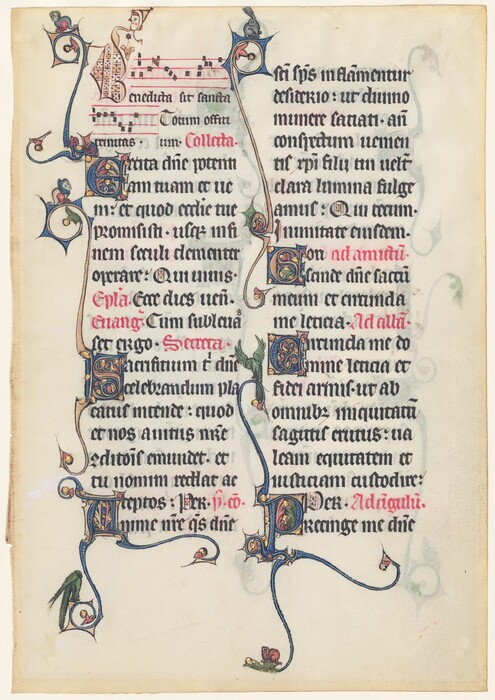 Benedicta sit sancta
Totum offiti
trinitas. um. Collecta.
Excita dñe potenti
am tuam et ue
ni: et quod ecclie tue
promisisti. usq in fi
nem seculi clementer
operare: Qui uiuis.
Epla. Ecce dies ueñ.
Euang. Cum subleua
set ergo. Secreta.
Sacrificium t̄ dñe
celebrandum pla
catus intende: quod
et nos a uitiis nr̄e
ꝯditonis emundet. et
tu nomini reddat ac
ceptos: Per. p̄. co.
Anime nr̄e qs dñe
sc̄i sp̄s inflamentur
desiderio: ut diuino
munere saciati. añ
conspectum uenien
tis xp̄i filii tui uelut
clara lumina fulge
amus: Qui tecum.
In unitate eiusdem.
ad amictū.
Scinde dñe saccū
meum et circunda
me leticia. Ad albā.
Circunda me do
mine leticia et
fidei armis. ut ab
omnibꝫ iniquitatū
sagittis erutus: ua
leam equitatem et
iusticiam custodire:
Per. Ad cingulū.
Precinge me dñe